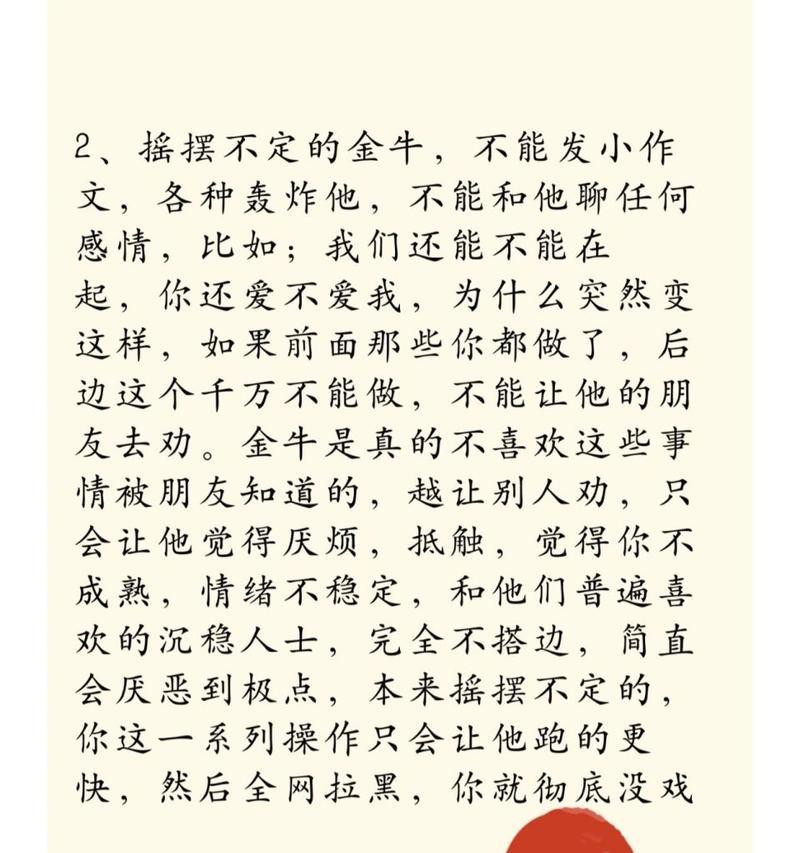 2、摇摆不定的金牛，不能发小作
文，各种轰炸他，不能和他聊任何
感情，比如；我们还能不能在
起，你还爱不爱我，为什么突然变
这样，如果前面那些你都做了，后
边这个千万不能做，不能让他的朋
友去劝。金牛是真的不喜欢这些事
情被朋友知道的，越让别人劝，只
会让他觉得厌烦，抵触，觉得你不
成熟，情绪不稳定，和他们普遍喜
欢的沉稳人士，完全不搭边，简直
会厌恶到极点，本来摇摆不定的，
你这一系列操作只会让他跑的更
快，然后全网拉黑，你就彻底没戏